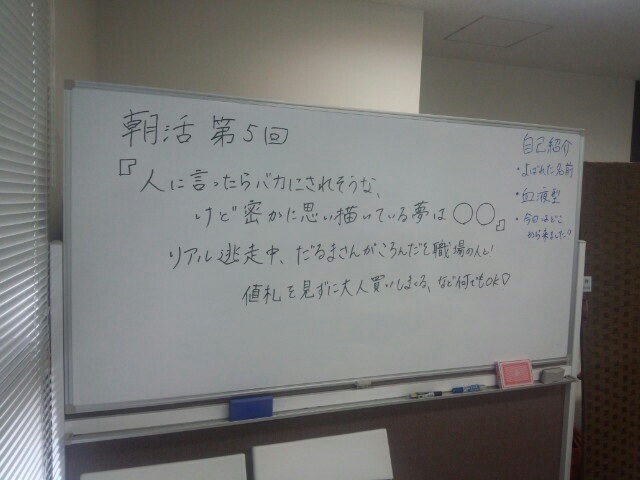 朝活 第5回
『人に言ったらバカにされそうな、
けど密かに思い描いている夢は〇〇』
リアル逃走中、だるまさんがころんだを職場の人と
値札を見ずに大人買いしまくる、など何でもOK♡
自己紹介
・よばれたい名前
・血液型
・今日はどこ
から来ました?